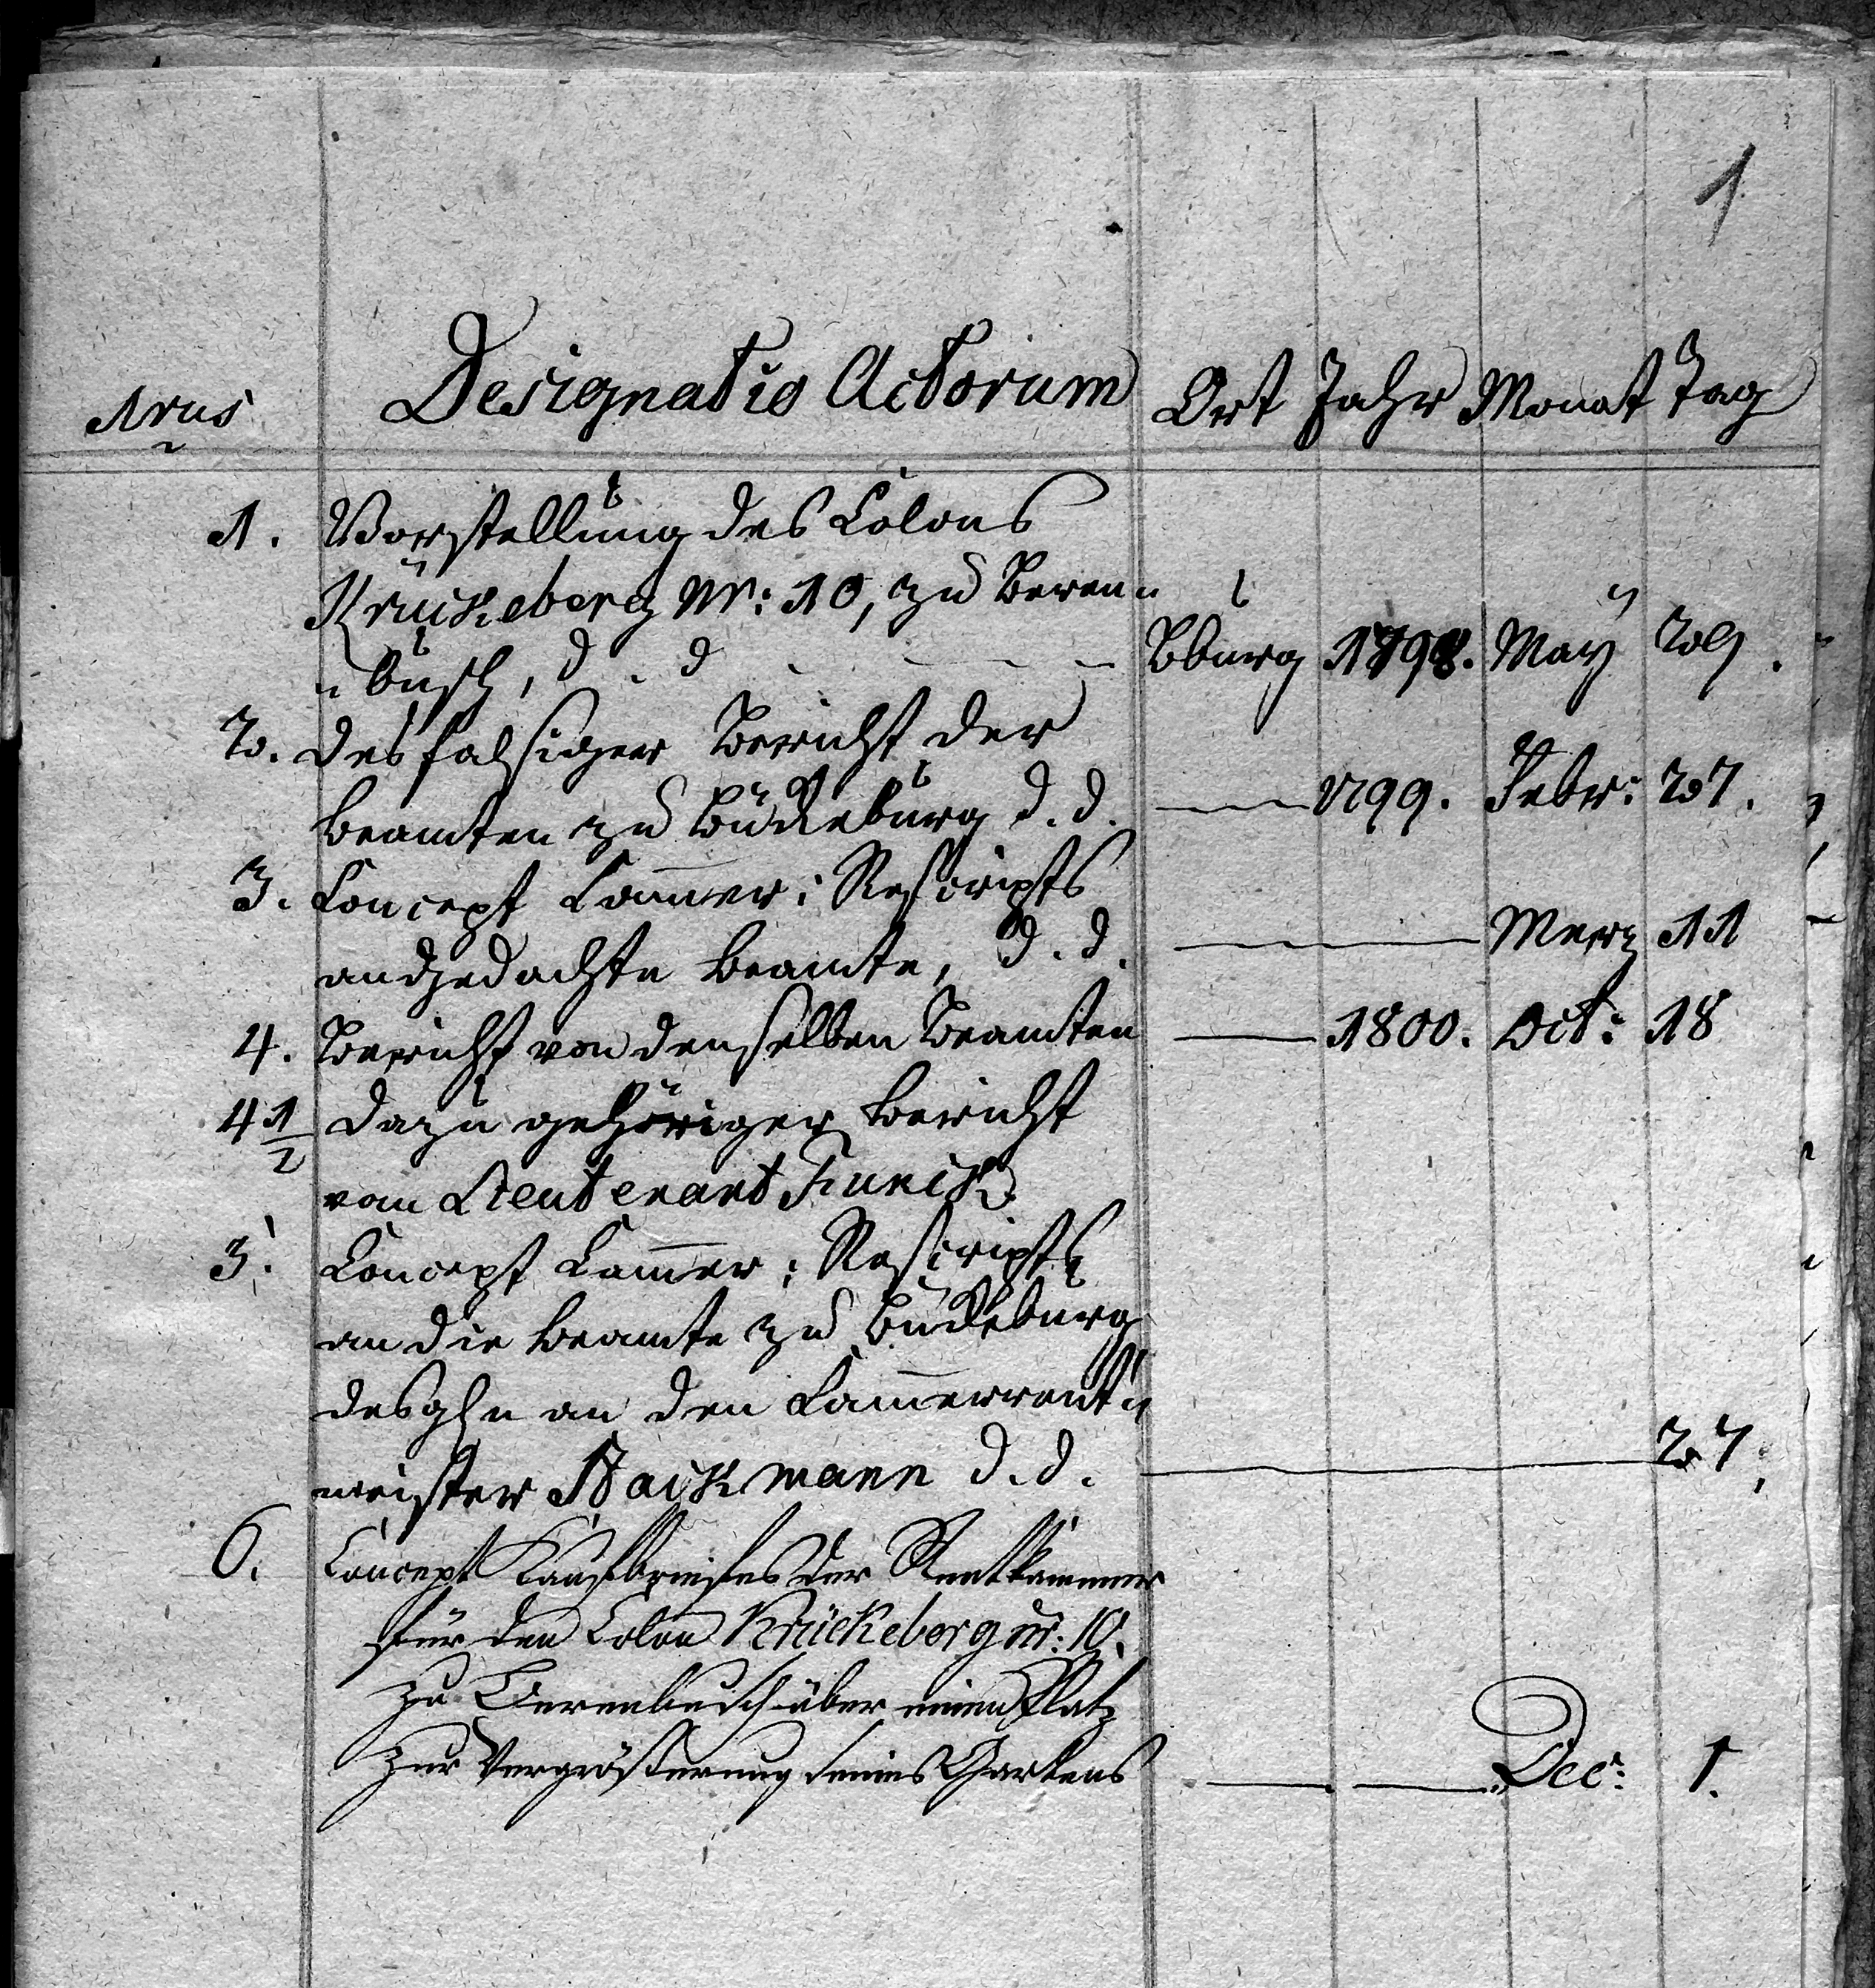 1
Nrus Designatio Actorum Ort Jahr Monat Tag
1. Vorstellung des Colons
Krückeberg Nr: 10, zu Beren„
„busch, d. d. Bburg 1798. May 29.
2. desfalsiger Bericht der
Beamten zu Bückeburg d. d. — 1799. Febr: 27.
3. Concept Cammer: Rescripts
an gedachte Beamte, d. d. — Merz 11
4. Bericht von denselben Beamten — 1800. Oct: 18
4 1/2 dazu gehöriger Bericht
vom Lieutenant Funck.
5. Concept Cammer: Rescripts
an die Beamte zu Bückeburg
desgln an den Cammerrent„
meister Backmann d. d. — 27.
6. Concept Kaufbriefes der Rentkammer
für den Colon Krückeberg nr: 10.
zu Berenbusch über einen Platz
zur Vergrößerung seines Gartens — — Dec: 1.